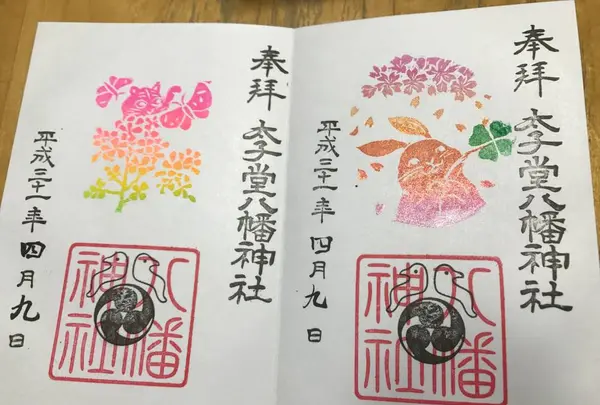 奉拝
太子堂八幡神社
八幡
神社
平成三十一年四月九日
奉拝
太子堂八幡神社
八幡
神社
平成三十一年四月九日